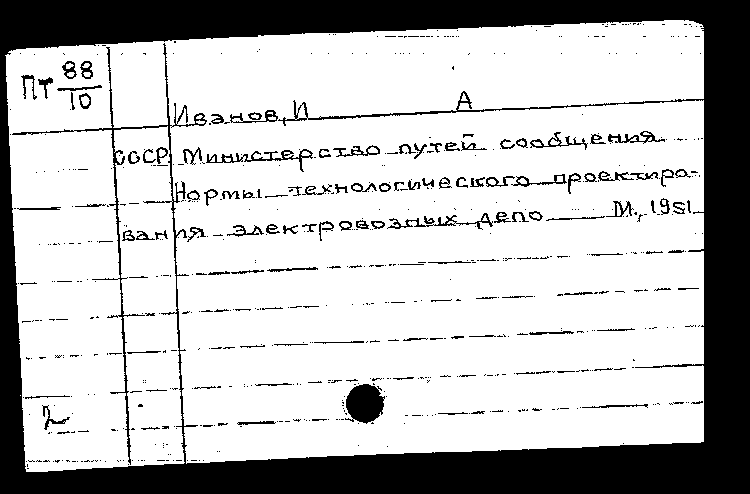 ПТ 88/10
Иванов, И А
СССР. Министерство путей сообщения.
Нормы технологического проектиро-
вания электровозных депо М., 1951
2